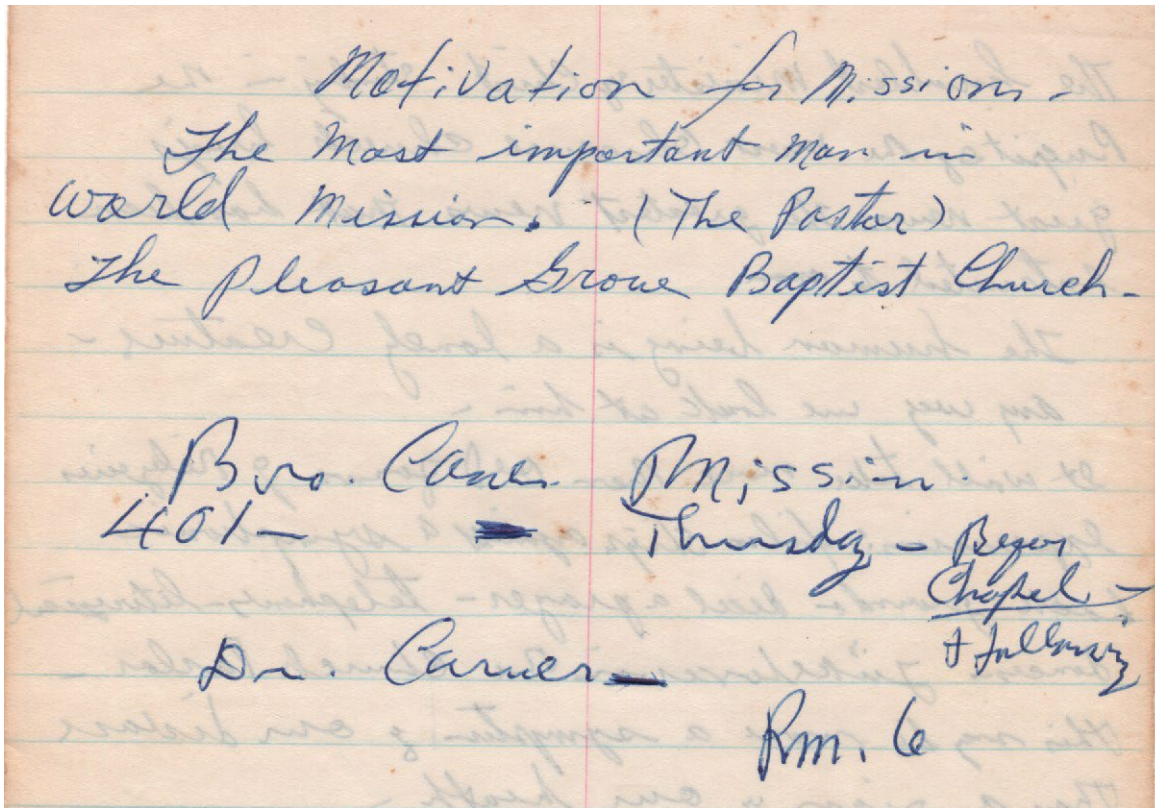 Motivation for Missions -
The Most important Man in
World Mission. (The Pastor)
The Pleasant Grove Baptist Church -
Bro. Missin.
401- Thursday -
Chapel -
+ following
Dr. Carver
Rm. 6